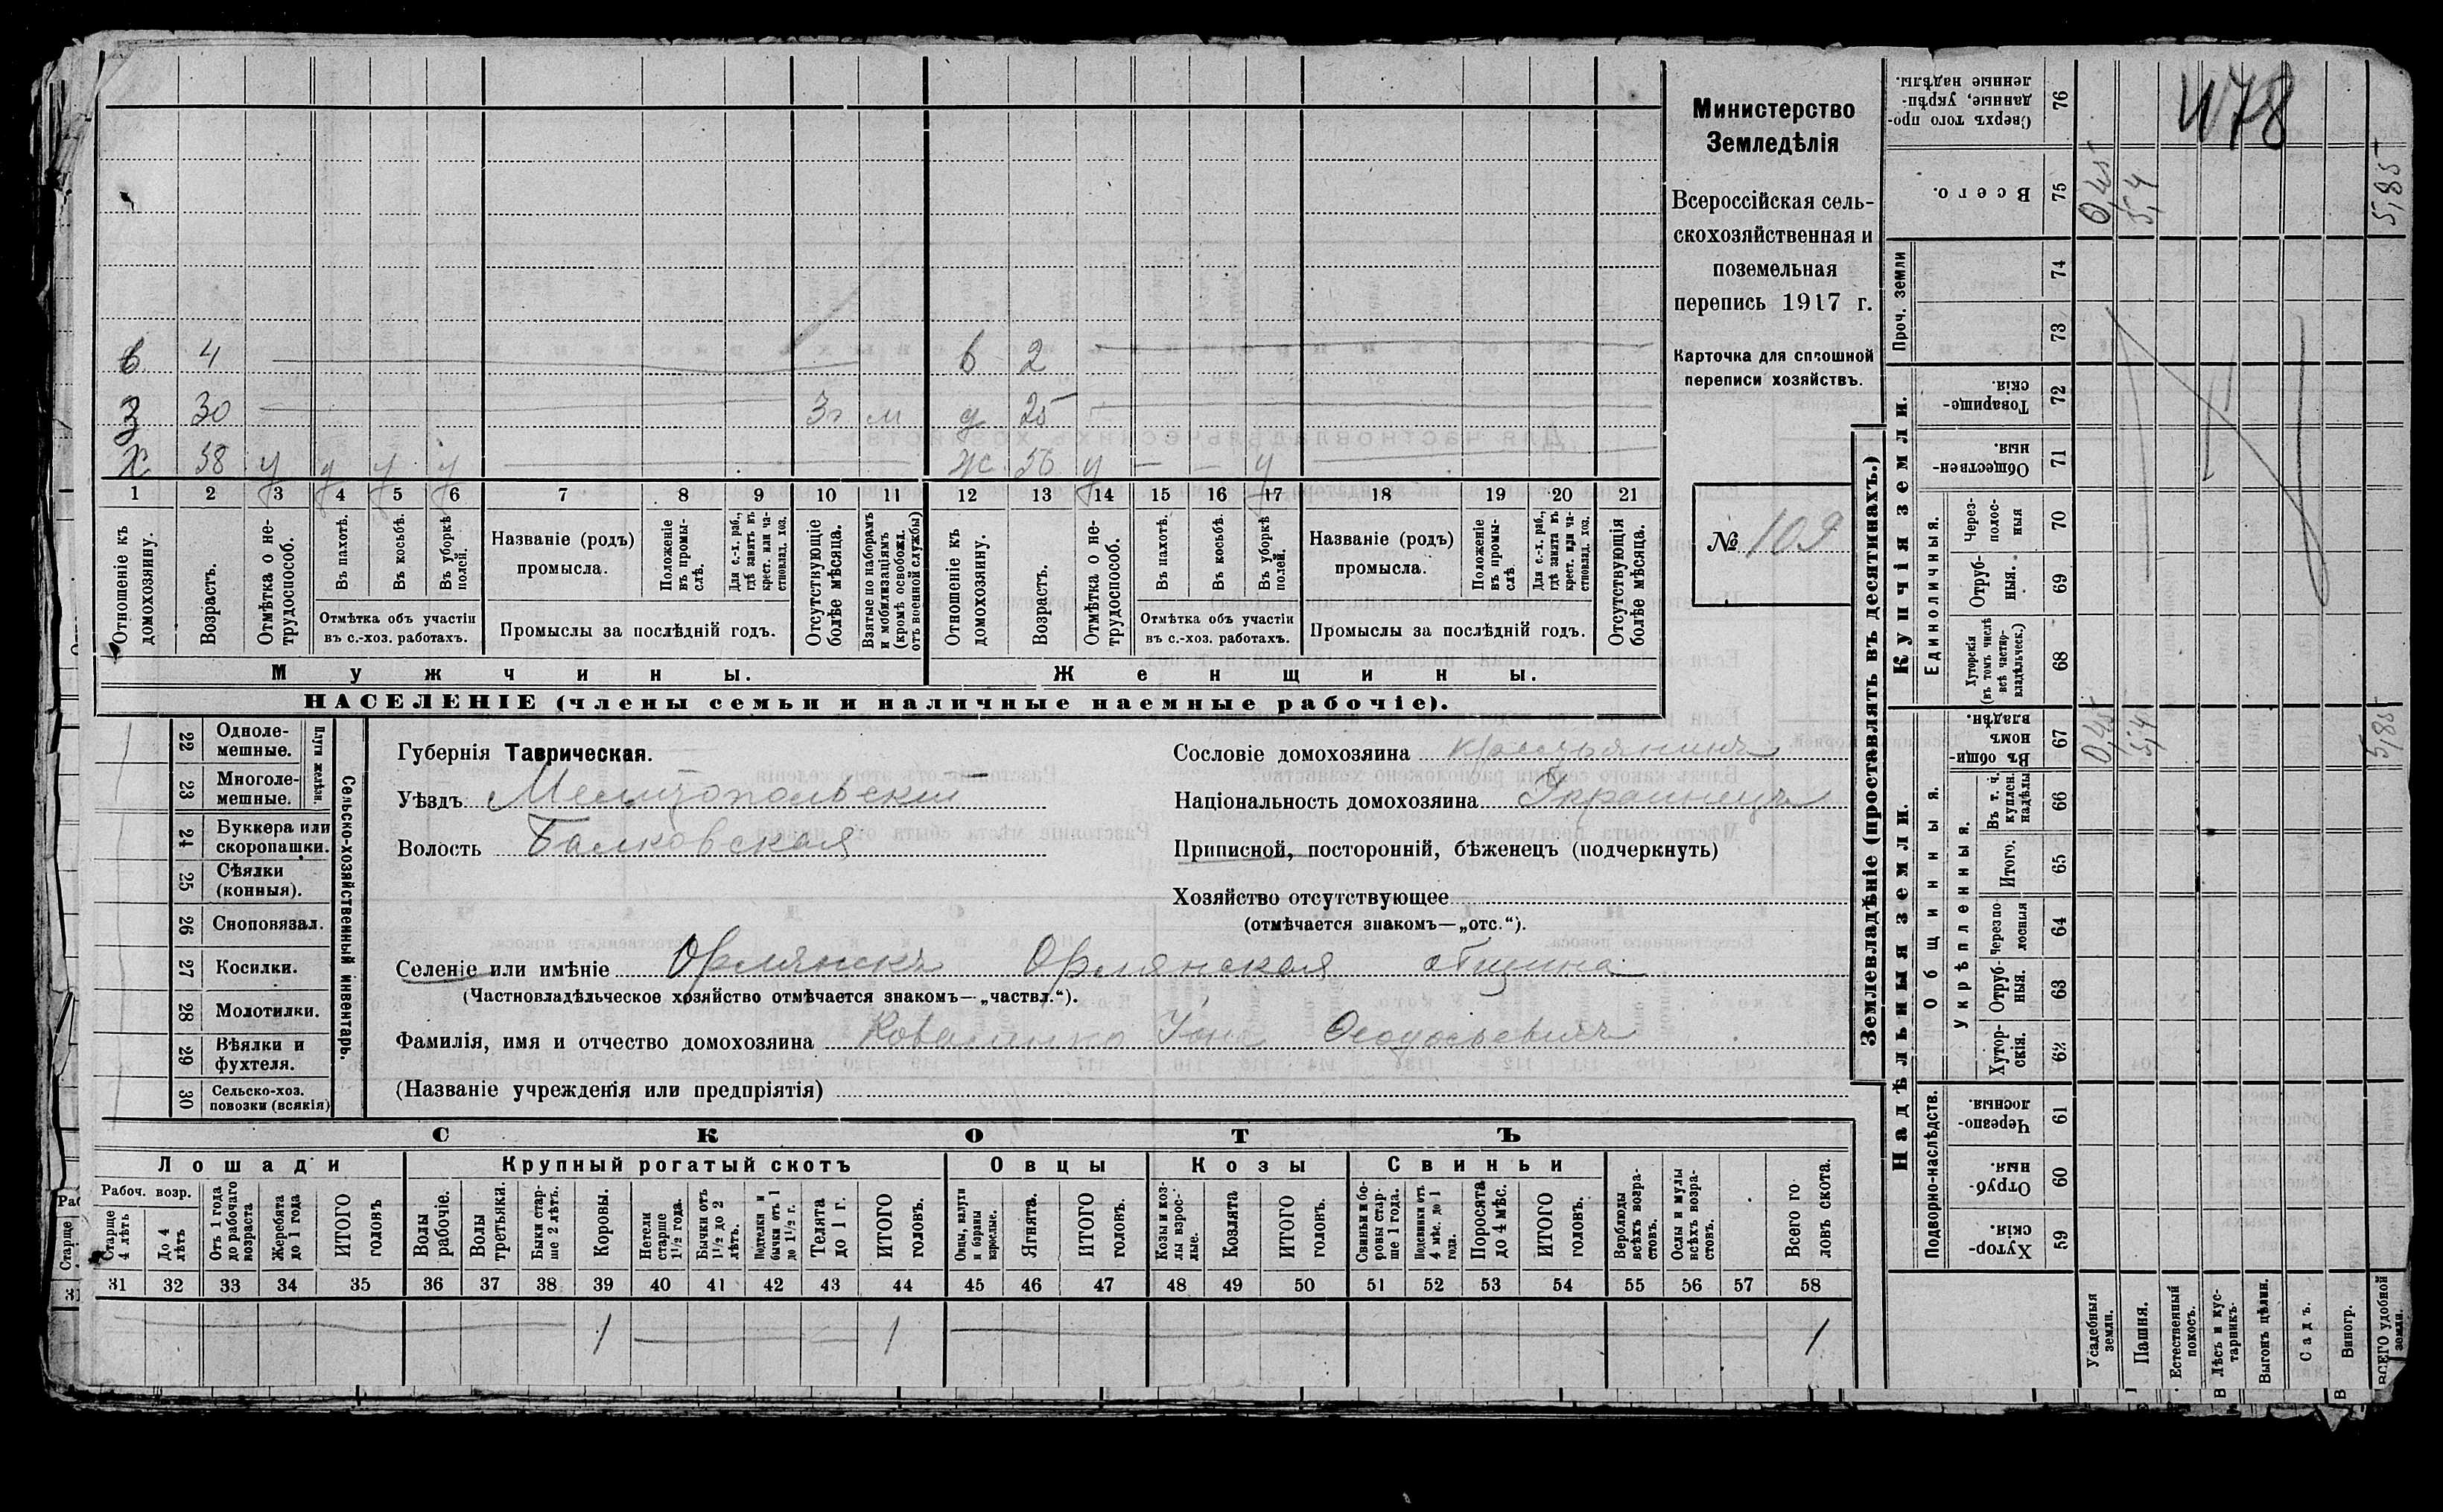 в 4 в 2
З 30 3г м д 25
Х 58 у у у у ж 56 у — — у
1 2 3 4 5 6 7 8 9 10 11 12 13 14 15 16 17 18 19 20 21
Отношеніе къ домохозяину.
Возрастъ.
Отмѣтка о не-
трудоспособ.
Въ пахотѣ.
Въ косьбѣ.
Въ уборкѣ полей.
Отмѣтка объ участіи
въ с.-хоз. работахъ.
Названіе (родъ)
промысла.
Положеніе въ промы-
слѣ.
Для с.-х. раб.,
гдѣ занятъ въ
крест. или ча-
стновлад. хоз.
Промыслы за послѣдній годъ.
Отсутствующіе
болѣе мѣсяца.
Взятые по наборамъ
и мобилизаціямъ
(кромѣ освобожд.
отъ военной службы)
Отношеніе къ
домохозяину.
Возрастъ.
Отмѣтка о не-
трудоспособ.
Въ пахотѣ.
Въ косьбѣ.
Въ уборкѣ
полей.
Отмѣтка объ участіи
въ с.-хоз. работахъ.
Названіе (родъ)
промысла.
Положеніе
въ промы-
слѣ.
Для с.-х. раб.,
гдѣ занята въ
крест. или ча-
стновлад. хоз.
Промыслы за послѣдній годъ.
Отсутствующія
болѣе мѣсяца.
Мужчины.
Женщины.
НАСЕЛЕНІЕ (члены семьи и наличные наемные рабочіе).
Министерство
Земледѣлія
Всероссійская сель-
скохозяйственная и
поземельная
перепись 1917 г.
Карточка для сплошной
переписи хозяйствъ.
№ 109
22 Одноле-
мешные.
23 Многоле-
мешные.
Плуги желѣзн.
24 Буккера или
скоропашки.
25 Сѣялки
(конныя).
26 Сноповязал.
27 Косилки.
28 Молотилки.
29 Вѣялки и
фухтеля.
30 Сельско-хоз.
повозки (всякія)
Сельско-хозяйственный инвентарь.
Губернія Таврическая.
Уѣздъ Мелитопольскій
Волость Балковская
Сословіе домохозяина крестьянинъ
Національность домохозяина Украинецъ
Приписной, посторонній, бѣженецъ (подчеркнуть)
Хозяйство отсутствующее
(отмѣчается знакомъ—„отс.“).
Селеніе или имѣніе Орлянскъ Орлянская община
(Частновладѣльческое хозяйство отмѣчается знакомъ—„частвл.“).
Фамилія, имя и отчество домохозяина Коваленко Іона Феодосьевичъ
(Названіе учрежденія или предпріятія)
СКОТЪ
Лошади
Крупный рогатый скотъ
Овцы
Козы
Свиньи
Рабоч. возр.
Старше
4 лѣтъ
До 4
лѣтъ
Отъ 1 года
до рабочаго
возраста
Жеребята
до 1 года
ИТОГО
головъ
Волы
рабочіе.
Волы
третьяки.
Быки стар-
ше 2 лѣтъ.
Коровы.
Нетели
старше
1½ года.
Бычки отъ
1½ до 2
лѣтъ.
Подтелки и
бычки отъ 1
до 1½ г.
Телята
до 1 г.
ИТОГО
головъ.
Овцы, валухи
и бараны
взрослые.
Ягнята.
ИТОГО
головъ.
Козы и коз-
лы взрос-
лые.
Козлята
ИТОГО
головъ.
Свиньи и бо-
ровы стар-
ше 1 года.
Подсвинки отъ
4 мѣс. до 1
года.
Поросята
до 4 мѣс.
ИТОГО
головъ.
Верблюды
всѣхъ возра-
стовъ.
Ослы и мулы
всѣхъ возра-
стовъ.
Всего го
ловъ скота.
31 32 33 34 35 36 37 38 39 40 41 42 43 44 45 46 47 48 49 50 51 52 53 54 55 56 57 58
1 1 1
Землевладѣніе (проставлять въ десятинахъ.)
478
Сверхъ того про-
данные, укрѣп-
ленные надѣлы.
76
Всего.
75
0,45
5,4
5,85
Проч. земли
74
73
Купчія земли.
Товарище-
скія.
72
Обществен-
ныя.
71
Единоличныя.
Через-
полос-
ныя
70
Отруб-
ныя.
69
Хуторскія
(въ томъ числѣ
всѣ частно-
владѣльческ.)
68
Надѣльныя земли.
Общинныя.
Въ общи-
номъ
владѣн.
67
0,45
5,4
5,85
Укрѣпленныя.
Въ т. ч.
куплен.
надѣлы
66
Итого.
65
Черезпо
лосныя
64
Отруб-
ныя.
63
Хутор-
скія.
62
Подворно-наслѣдств.
Черезпо-
лосныя.
61
Отруб-
ныя.
60
Хутор-
скія.
59
Усадебныя
земли.
Пашня.
Естественный
покосъ.
Лѣсъ и кус-
тарникъ.
Выгонъ цѣлин.
Садъ.
Виногр.
ВСЕГО удобной
земли.